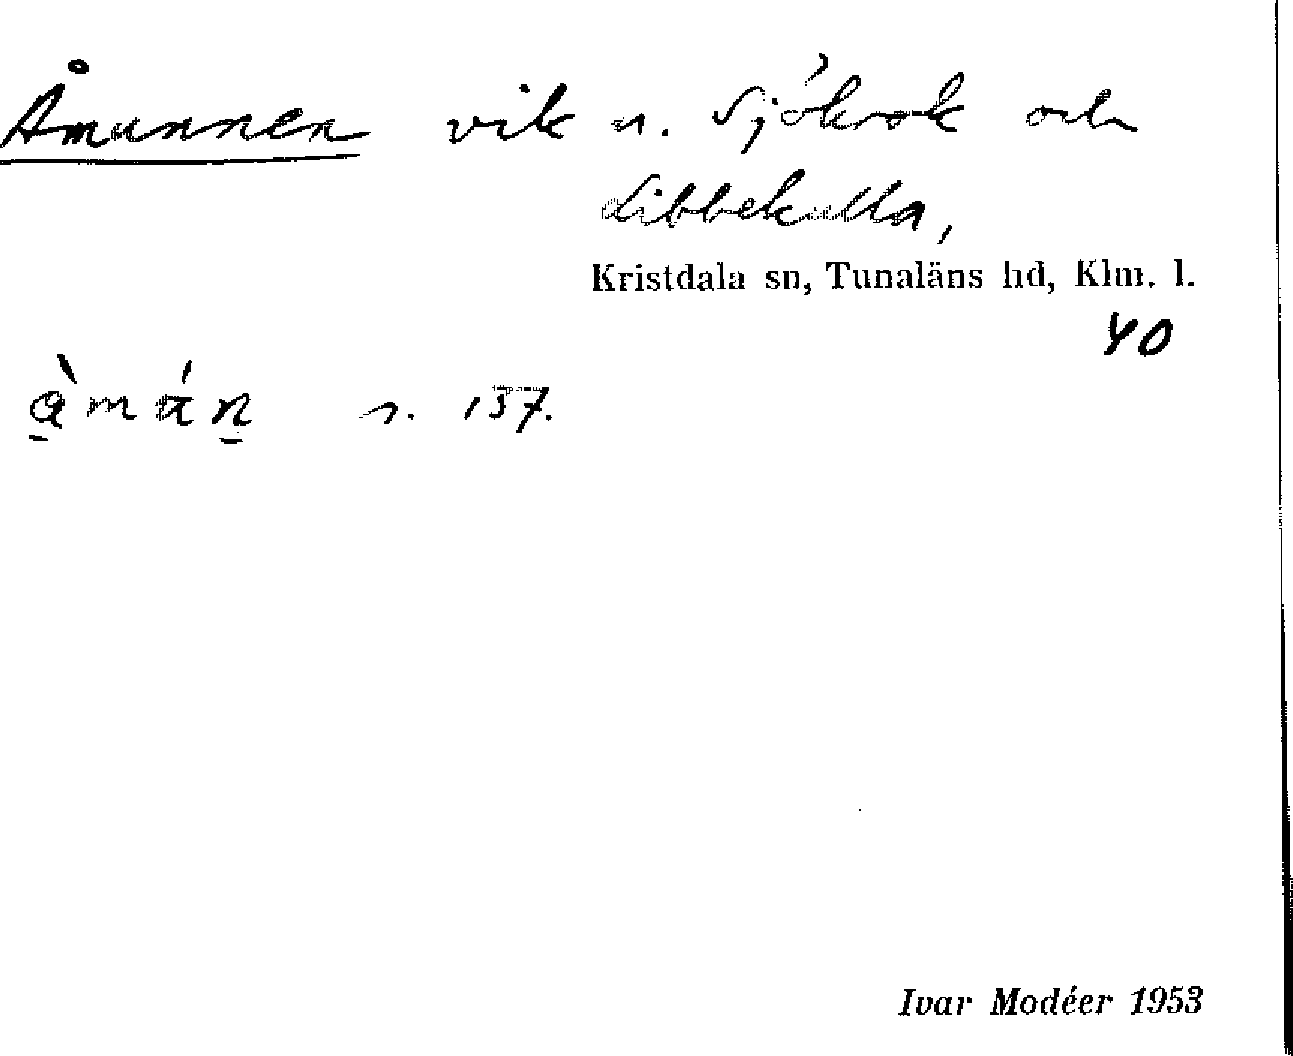 Åmunnen vik n. Sjökrok och
Libbekulla,
Kristdala sn, Tunaläns hd, Klm. l.
40
s. 137.
Ivar Modéer 1953